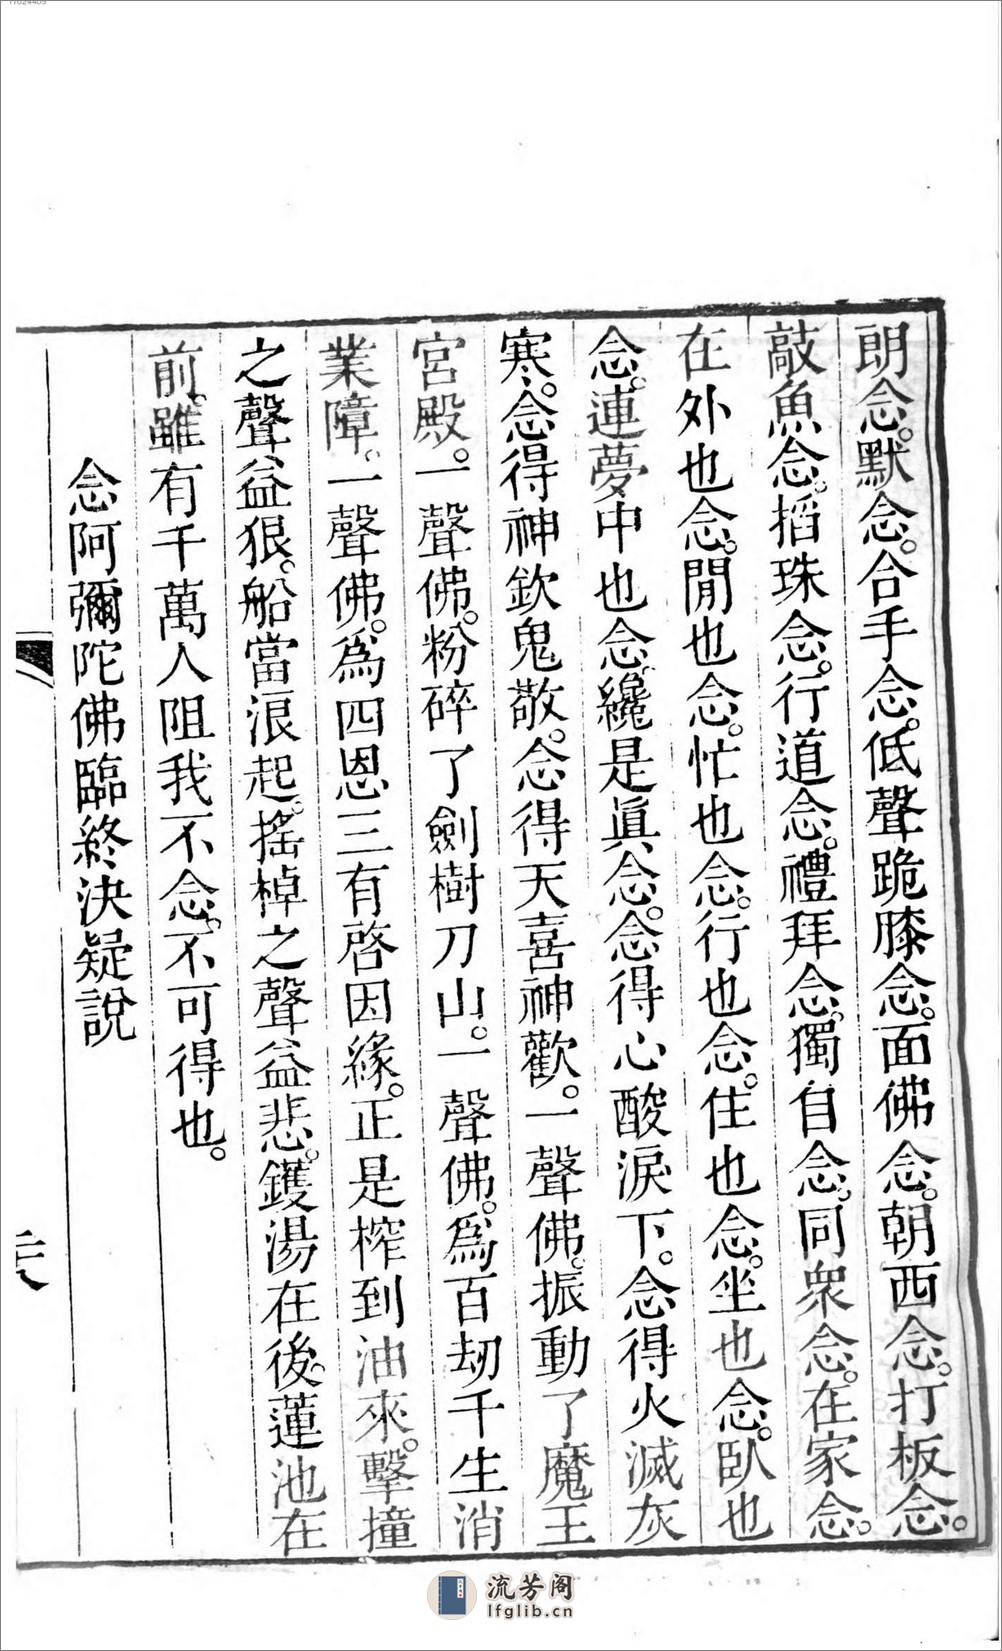 朗念。默念。合手念。低聲跪膝念。面佛念。朝西念。打板念。
敲魚念。掐珠念。行道念。禮拜念。獨自念。同衆念。在家念。
在外也念。閒也念。忙也念。行也念。住也念。坐也念。臥也
念。連夢中也念。纔是眞念。念得心酸淚下。念得火滅灰
寒。念得神欽鬼敬。念得天喜神歡。一聲佛。振動了魔王
宮殿。一聲佛。粉碎了劍樹刀山。一聲佛。爲百劫千生消
業障。一聲佛。爲四恩三有啓因緣。正是榨到油來。擊撞
之聲益狠。船當浪起。搖棹之聲益悲。鑊湯在後。蓮池在
前。雖有千萬人阻我不念。不可得也。
念阿彌陀佛臨終決疑說
流芳阁
lfglib.cn